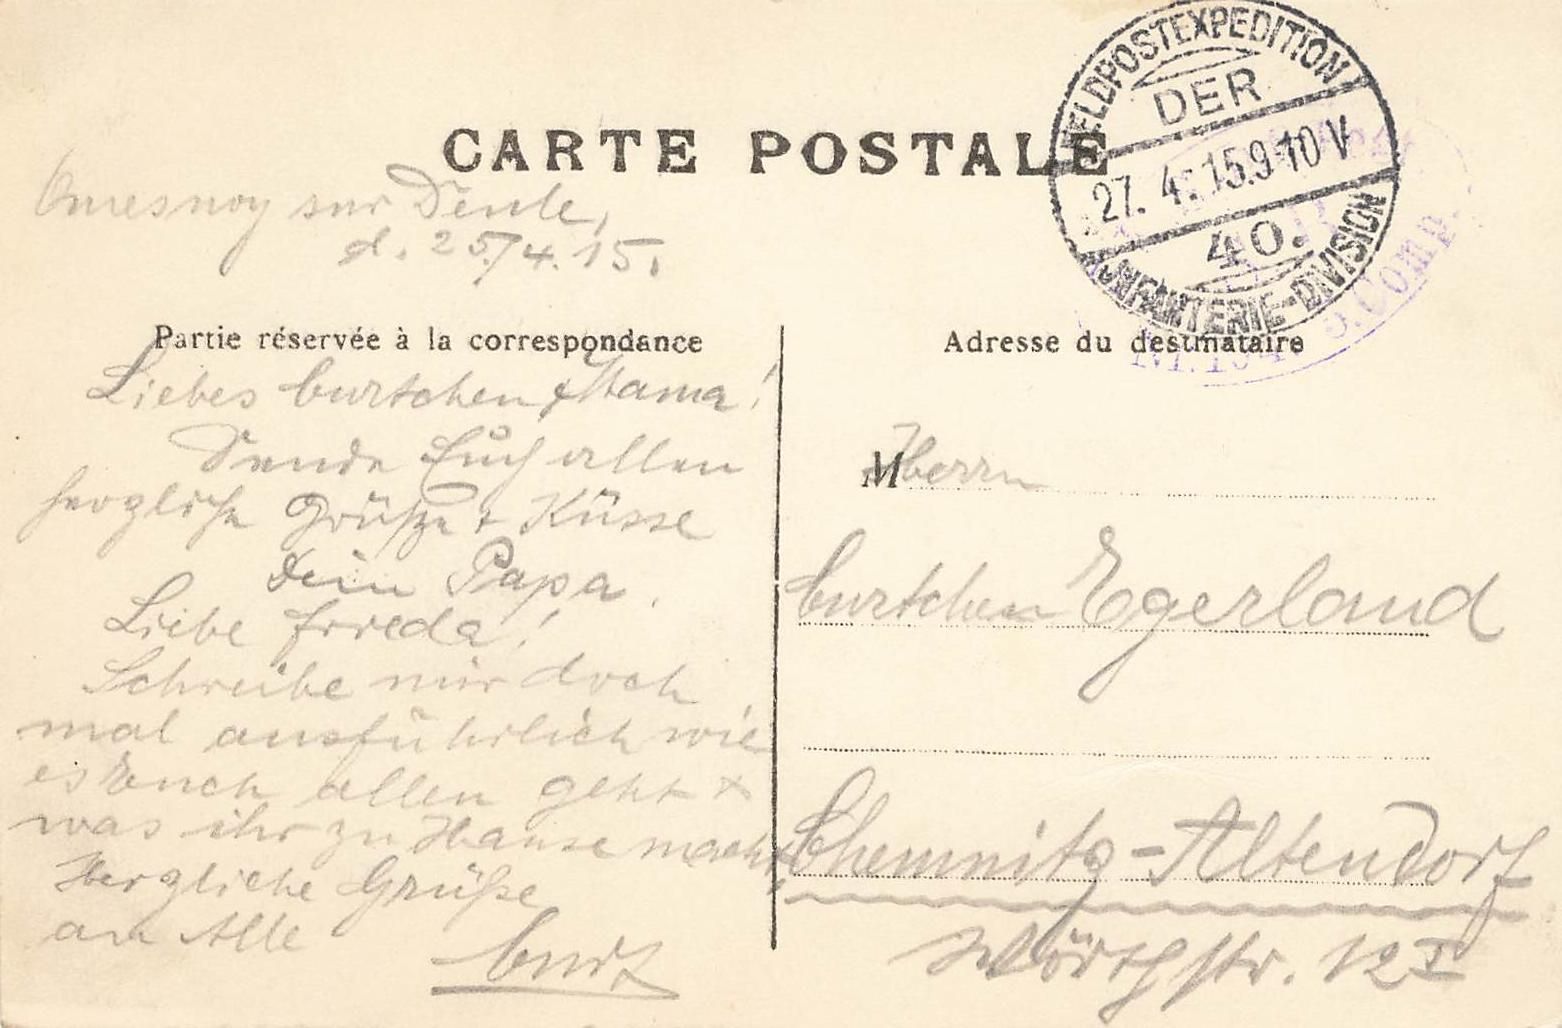 CARTE POSTALE
FELDPOSTEXPEDITION
DER
27. 4. 15. 9-10 V
40.
INFANTERIE-DIVISION
5. Comp.
sur Deule,
d. 25./4.15.
Partie réservée à la correspondance
Liebes Curtchen & Mama!
Sende Euch allen
herzliche Grüße + Küsse
Dein Papa.
Liebe Frieda!
Schreibe mir doch
mal ausführlich wie
es Euch allen geht +
was ihr zu Hause macht,
Herzliche Grüße
an Alle
Curt
Adresse du destinataire
M Herrn
Curtchen Egerland
Chemnitz-Altendorf
Wörthstr. 12 I